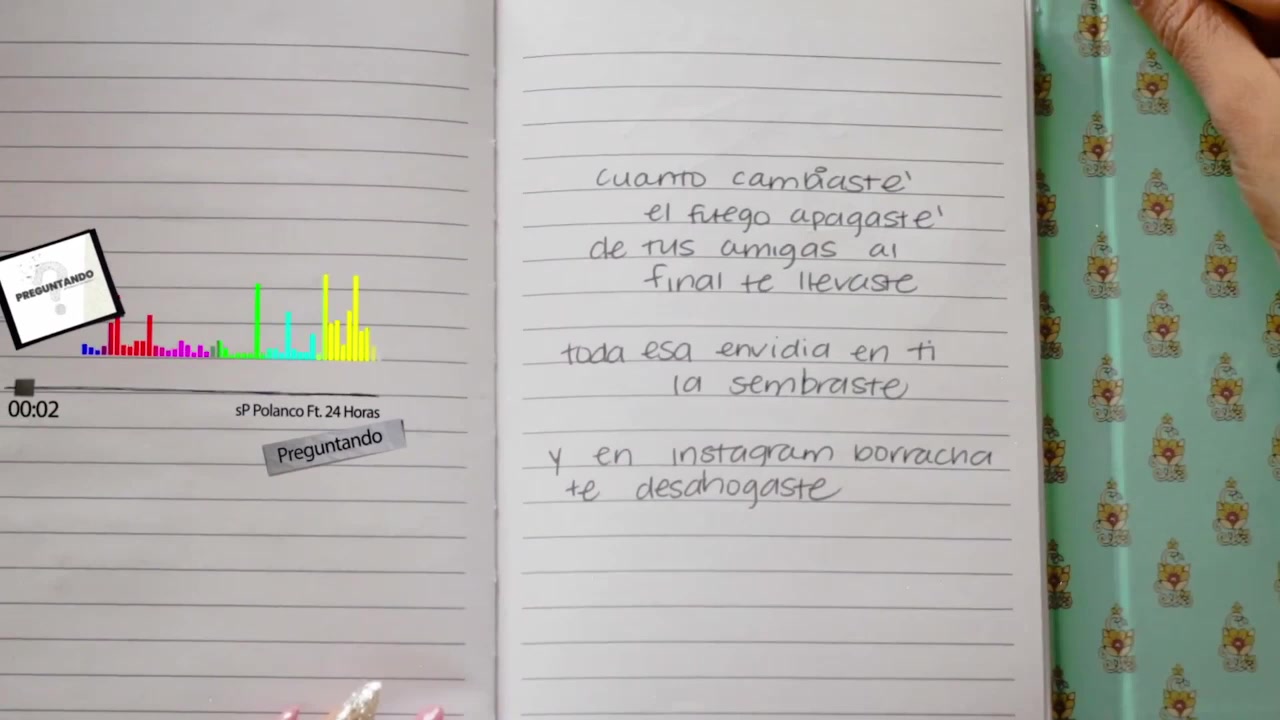 PREGUNTANDO
00:02
sP Polanco Ft. 24 Horas
Preguntando
cuanto cambiaste'
el fuego apagaste'
de tus amigas al
final te llevaste
toda esa envidia en ti
la sembraste
y en instagram borracha
te desahogaste